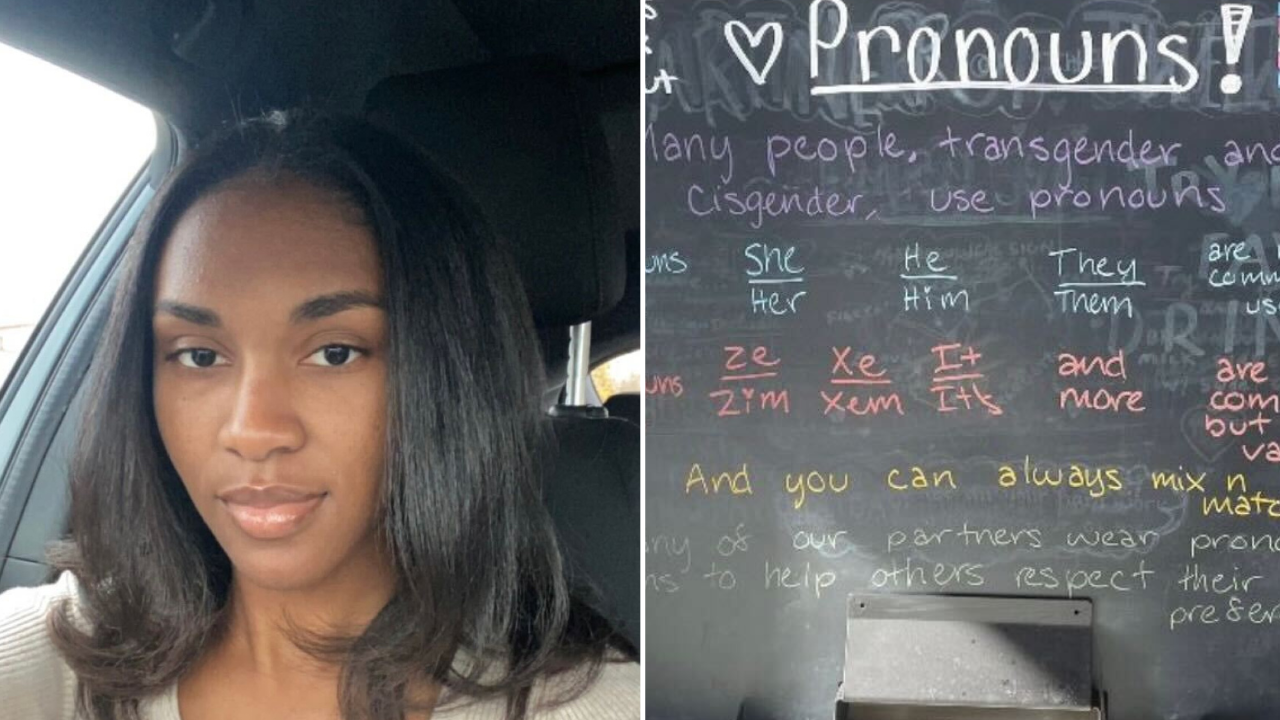 ut
♡ Pronouns!
Many people, transgender and
Cisgender, use pronouns
uns She He They are
Her Him Them comm
us
uns ze Xe It and are
zim Xem Its more com
but
va
And you can always mix n
matc
ny of our partners wear prono
ns to help others respect their
prefer